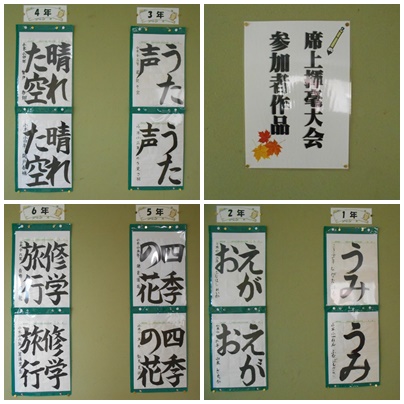 4年
晴れ
た空
晴れ
た空
3年
うた
声
うた
声
席上揮毫大会
参加者作品
6年
修学
旅行
修学
旅行
5年
四季
の花
四季
の花
2年
えが
お
えが
お
1年
うみ
うみ